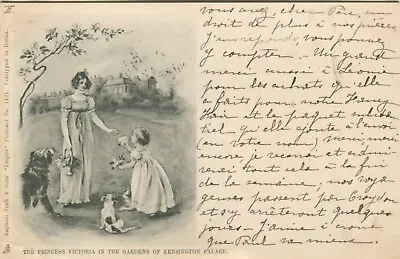 vous avez, cher Père, un
droit de plus à nos prières.
J'en réponds, vous pouvez
y compter. Un grand
merci aussi à Léonie
pour les achats qu'elle
a faits pour notre
et le paquet
tiel qu'elle ajoute à l'envoi
(en votre nom) merci, merci
encore, je recevrai et
virai tout cela à la fin
de la semaine, nos voya-
geuses passent par Croydon
et s'y arrêteront quelques
jours. J'aime à croire
que Paul va mieux.
THE PRINCESS VICTORIA IN THE GARDENS OF KENSINGTON PALACE.
Raphael Tuck & Sons' "Empire" Postcard No. 1471. Phototyped in Berlin.
II.